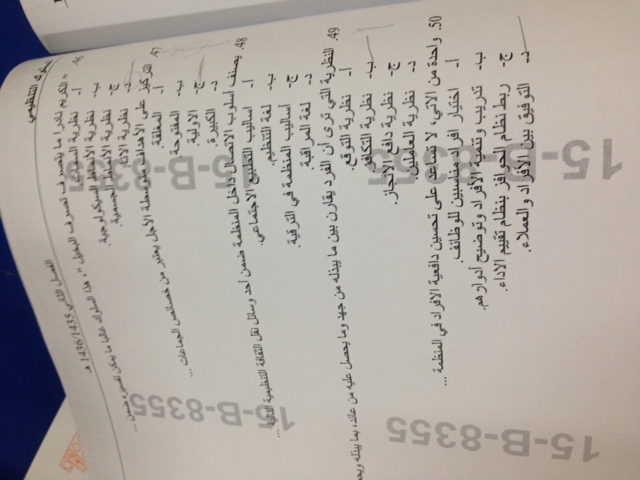 السلوك التنظيمي
الفصل الثاني 1436/1435 هـ
46. " الكريم نادرا ما يتصرف تصرف البخيل "، هذا السلوك غالبا ما يمكن تفسيره ضمن ...
أ- نظرية السمات.
ب- نظرية الأنماط السيكولوجية.
ج- نظرية الأنماط الجسمية.
د- نظرية الأنا.
47. التركيز على الأهداف متوسطة الأجل يعتبر من خصائص الجماعات ...
أ- المغلقة.
ب- المفتوحة.
ج- الأولية.
د- الكبيرة.
48. يصنف أسلوب الاتصال داخل المنظمة ضمن أحد وسائل نقل الثقافة التنظيمية التالية ...
أ- أساليب التطبيع الاجتماعي.
ب- لغة التنظيم.
ج- أساليب المنظمة في الترقية.
د- لغة المراقبة.
49. النظرية التي ترى أن الفرد يقارن بين ما يبذله من جهد وما يحصل عليه من عائد، بما يبذله ويحصل
أ- نظرية التوقع.
ب- نظرية التكافؤ.
ج- نظرية دافع الانجاز.
د- نظرية العاملين.
50. واحدة من الآتي، لا تساعد على تحسين دافعية الأفراد في المنظمة ...
أ- اختيار أفراد مناسبين للوظائف.
ب- تدريب وتنمية الأفراد وتوضيح أدوارهم.
ج- ربط نظام الحوافز بنظام تقييم الأداء.
د- التوفيق بين الأفراد والعملاء.
15-B-8355
15-B-8355
15-B-8355
15-B-8355